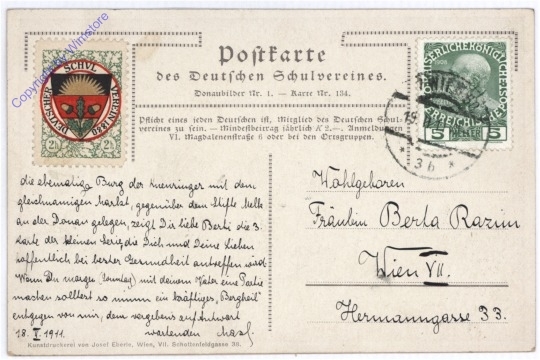 Copyright by Wnrstore
DEUTSCHER SCHUL VEREIN 1880
2h 2h
Postkarte
des Deutschen Schulvereines.
Donaubilder Nr. 1. — Karte Nr. 134.
Pflicht eines jeden Deutschen ist, Mitglied des Deutschen Schul-
vereines zu sein. — Mindestbeitrag jährlich K 2.—. Anmeldungen
VI. Magdalenenstraße 6 oder bei den Ortsgruppen.
1908
5 HELLER 5
* 3b *
die ehemalige Burg der Kuenringer mit dem
gleichnamigen Markt, gegenüber dem Stifte Melk
an der Donau gelegen, zeigt Dir liebe Berti die 3.
Karte der kleinen Serie, die Dich und Deine Lieben
hoffentlich bei bester Gesundheit antreffen wird.
Wenn Du morgen (Sonntag) mit deinem Vater eine Partie
machen solltest so nimm ein kräftiges „Bergheil"
entgegen von mir, dem vergebens auf Antwort
18. I. 1911. wartenden
Wohlgeboren
Fräulein Berta Razim
Wien VII.
Hermanngasse 33.
Kunstdruckerei von Josef Eberle, Wien, VII. Schottenfeldgasse 38.